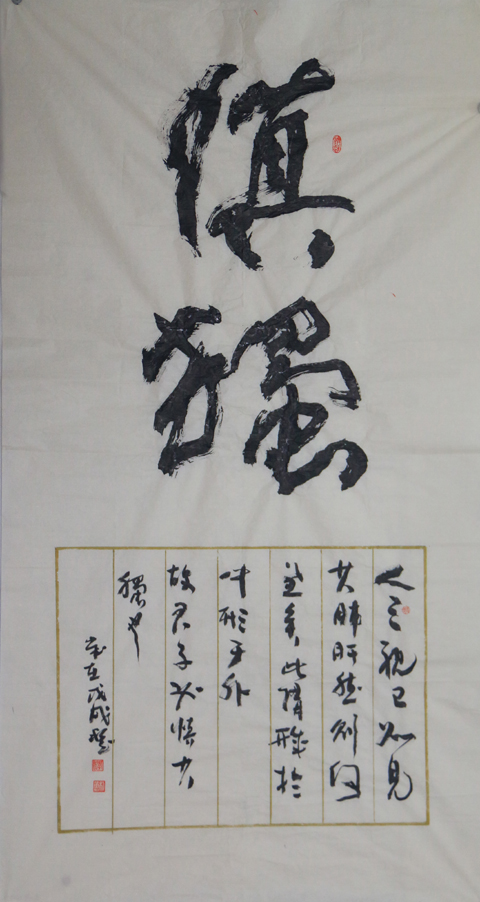 慎獨
人之視己如見
其肺肝然則何
益矣此謂誠於
中形于外
故君子必慎其
獨也
歲在戊戌